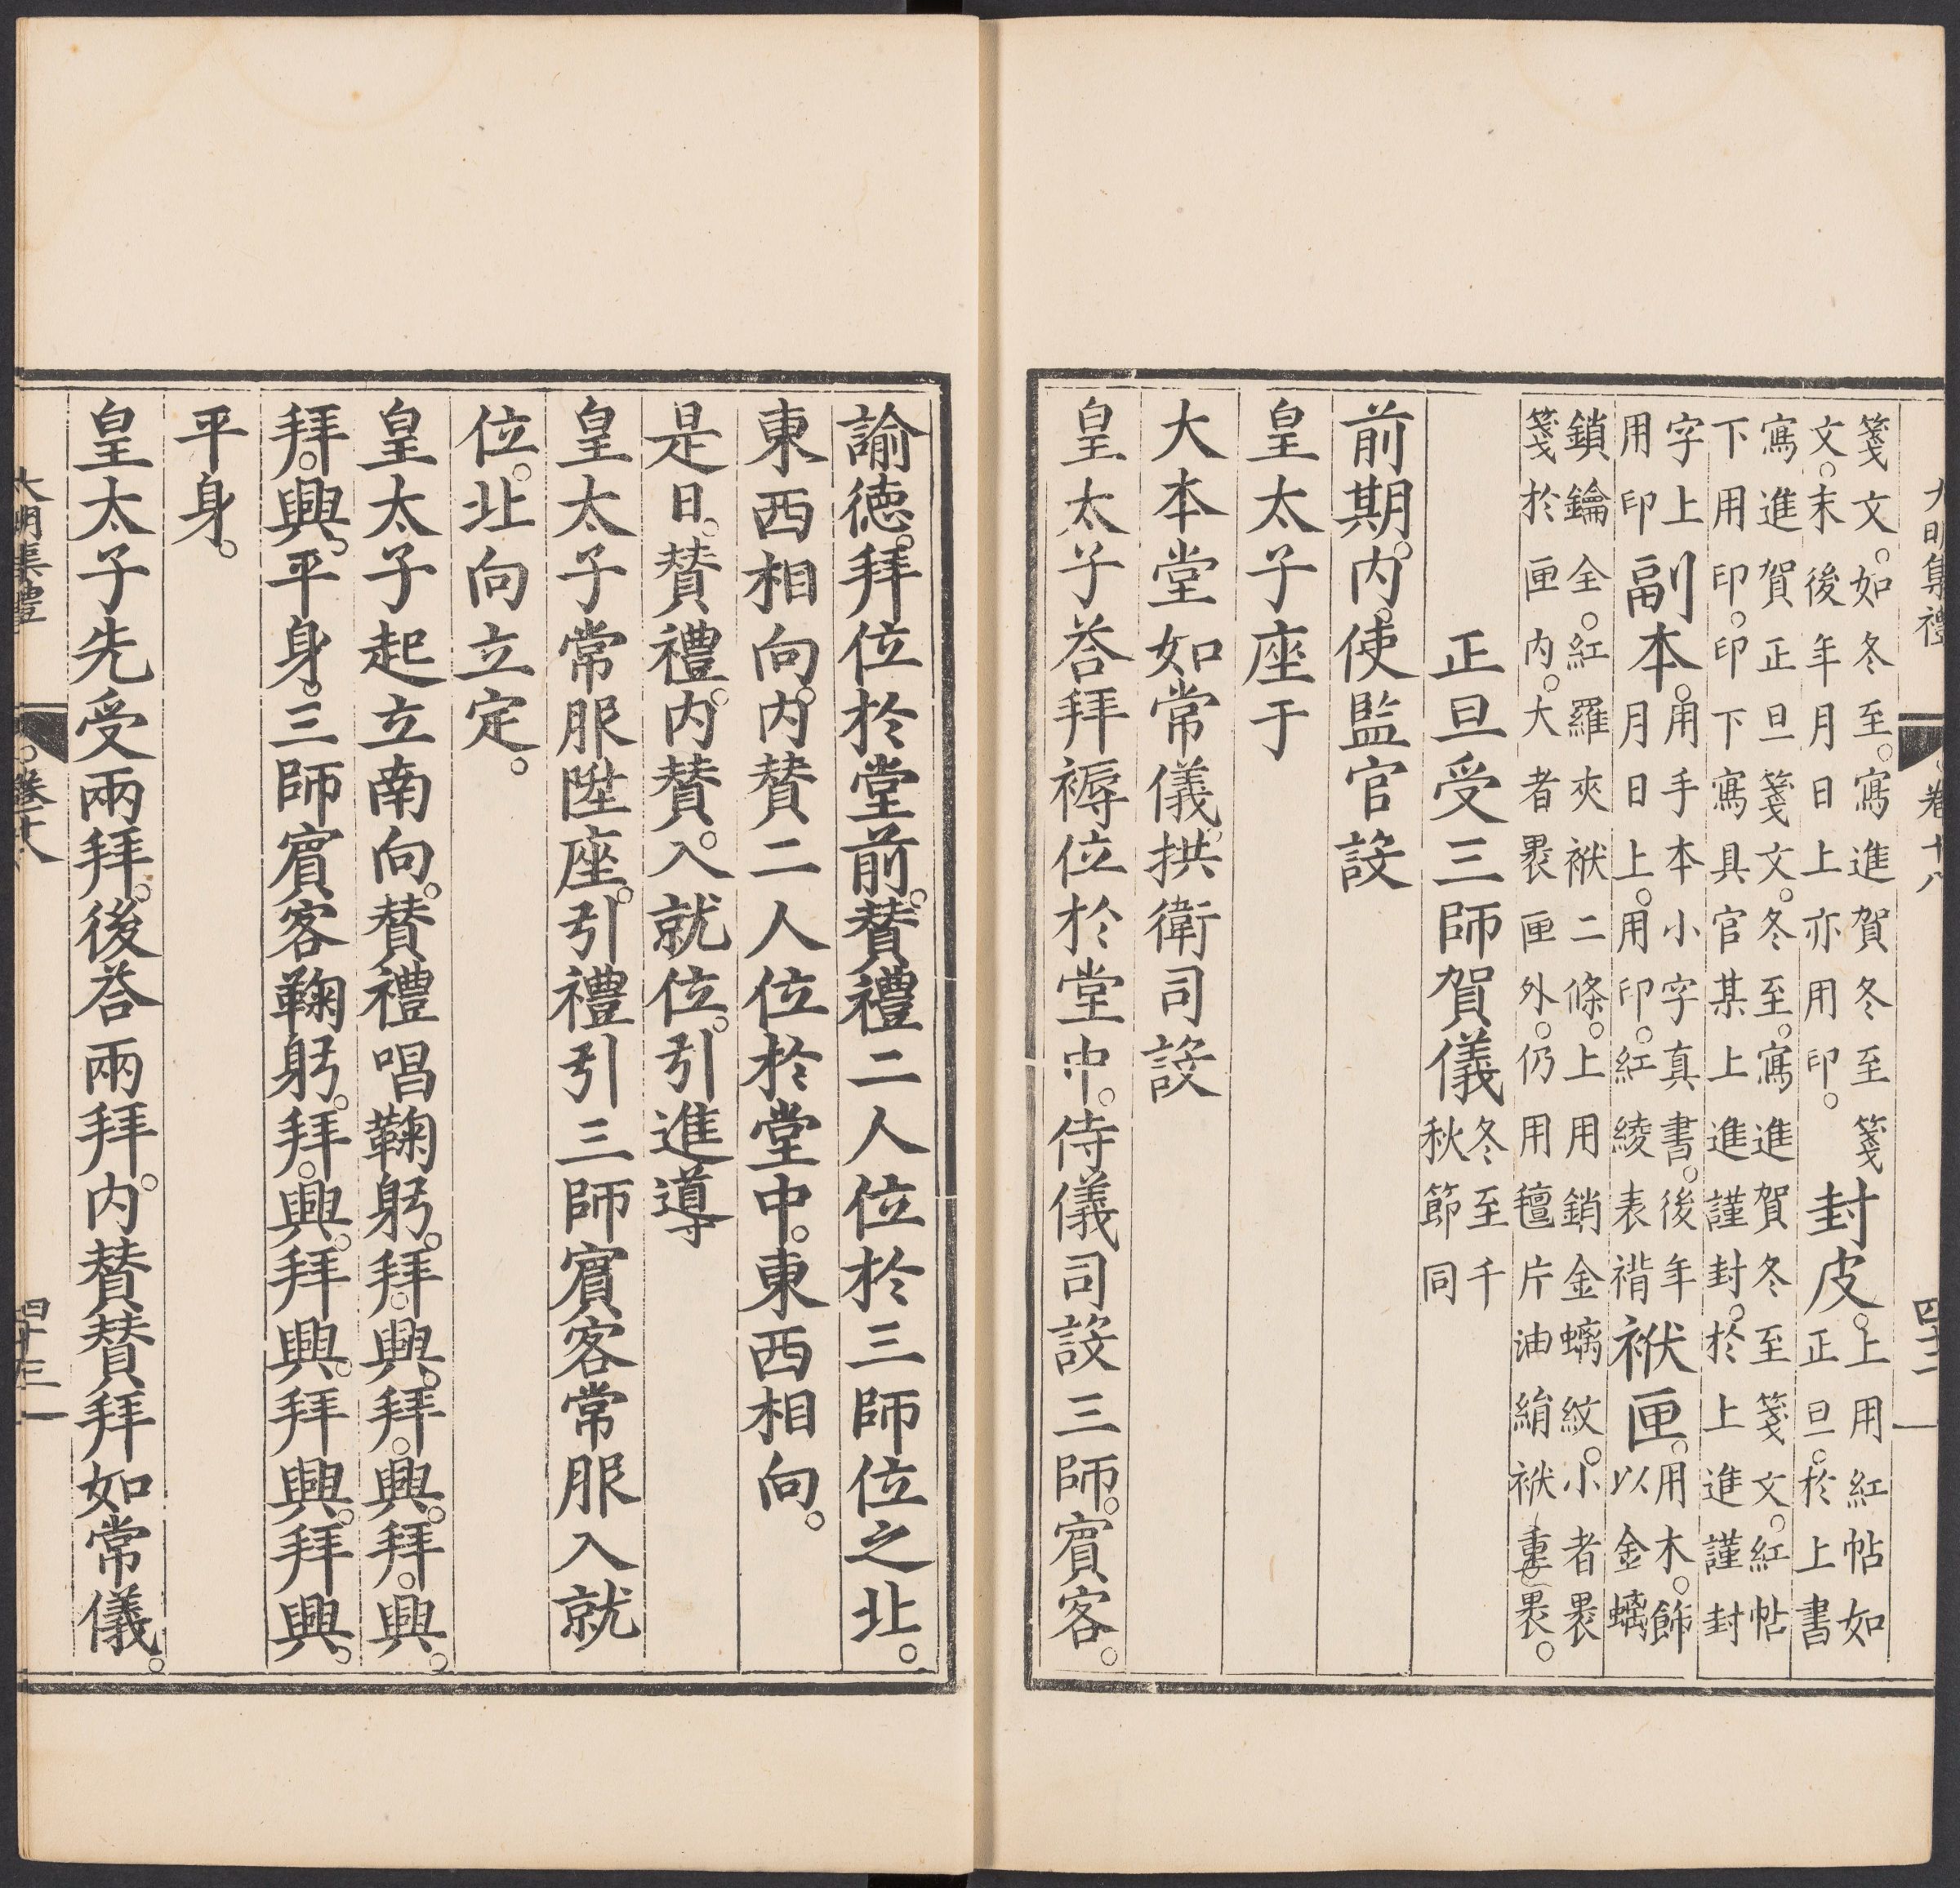 大明集禮 卷十八 四十二
箋文。如冬至。寫進賀冬至箋
文。末後年月日上亦用印。
封皮。
上用紅帖如
正旦。於上書
寫進賀正旦箋文。冬至。寫進賀冬至箋文。紅帖
下用印。印下寫具官某上進謹封。於上進謹封
字上
用印
副本。
用手本小字真書。後年
月日上。用印。紅綾表褙
袱匣。
用木。飾
以金螭
鎖鑰全。紅羅夾袱二條。上用銷金螭紋。小者裹
箋於匣内。大者裹匣外。仍用氊片油絹袱重裹。
正旦受三師賀儀
冬至千
秋節同
前期。内。使監官設
皇太子座于
大本堂如常儀。拱衛司設
皇太子荅拜褥位於堂中。侍儀司設三師。賓客。
諭德。拜位於堂前。贊禮二人位於三師位之北。
東西相向。内贊二人位於堂中。東西相向。
是日。贊禮。内贊。入就位。引進導
皇太子常服陞座。引禮引三師賓客常服入就
位。北向立定。
皇太子起立南向。贊禮唱鞠躬。拜。興。拜。興。拜。興。
拜。興。平身。三師賓客鞠躬。拜。興。拜興。拜興。拜興。
平身。
皇太子先受兩拜。後荅兩拜。内贊贊拜如常儀。
大明集禮 卷十八 四十三